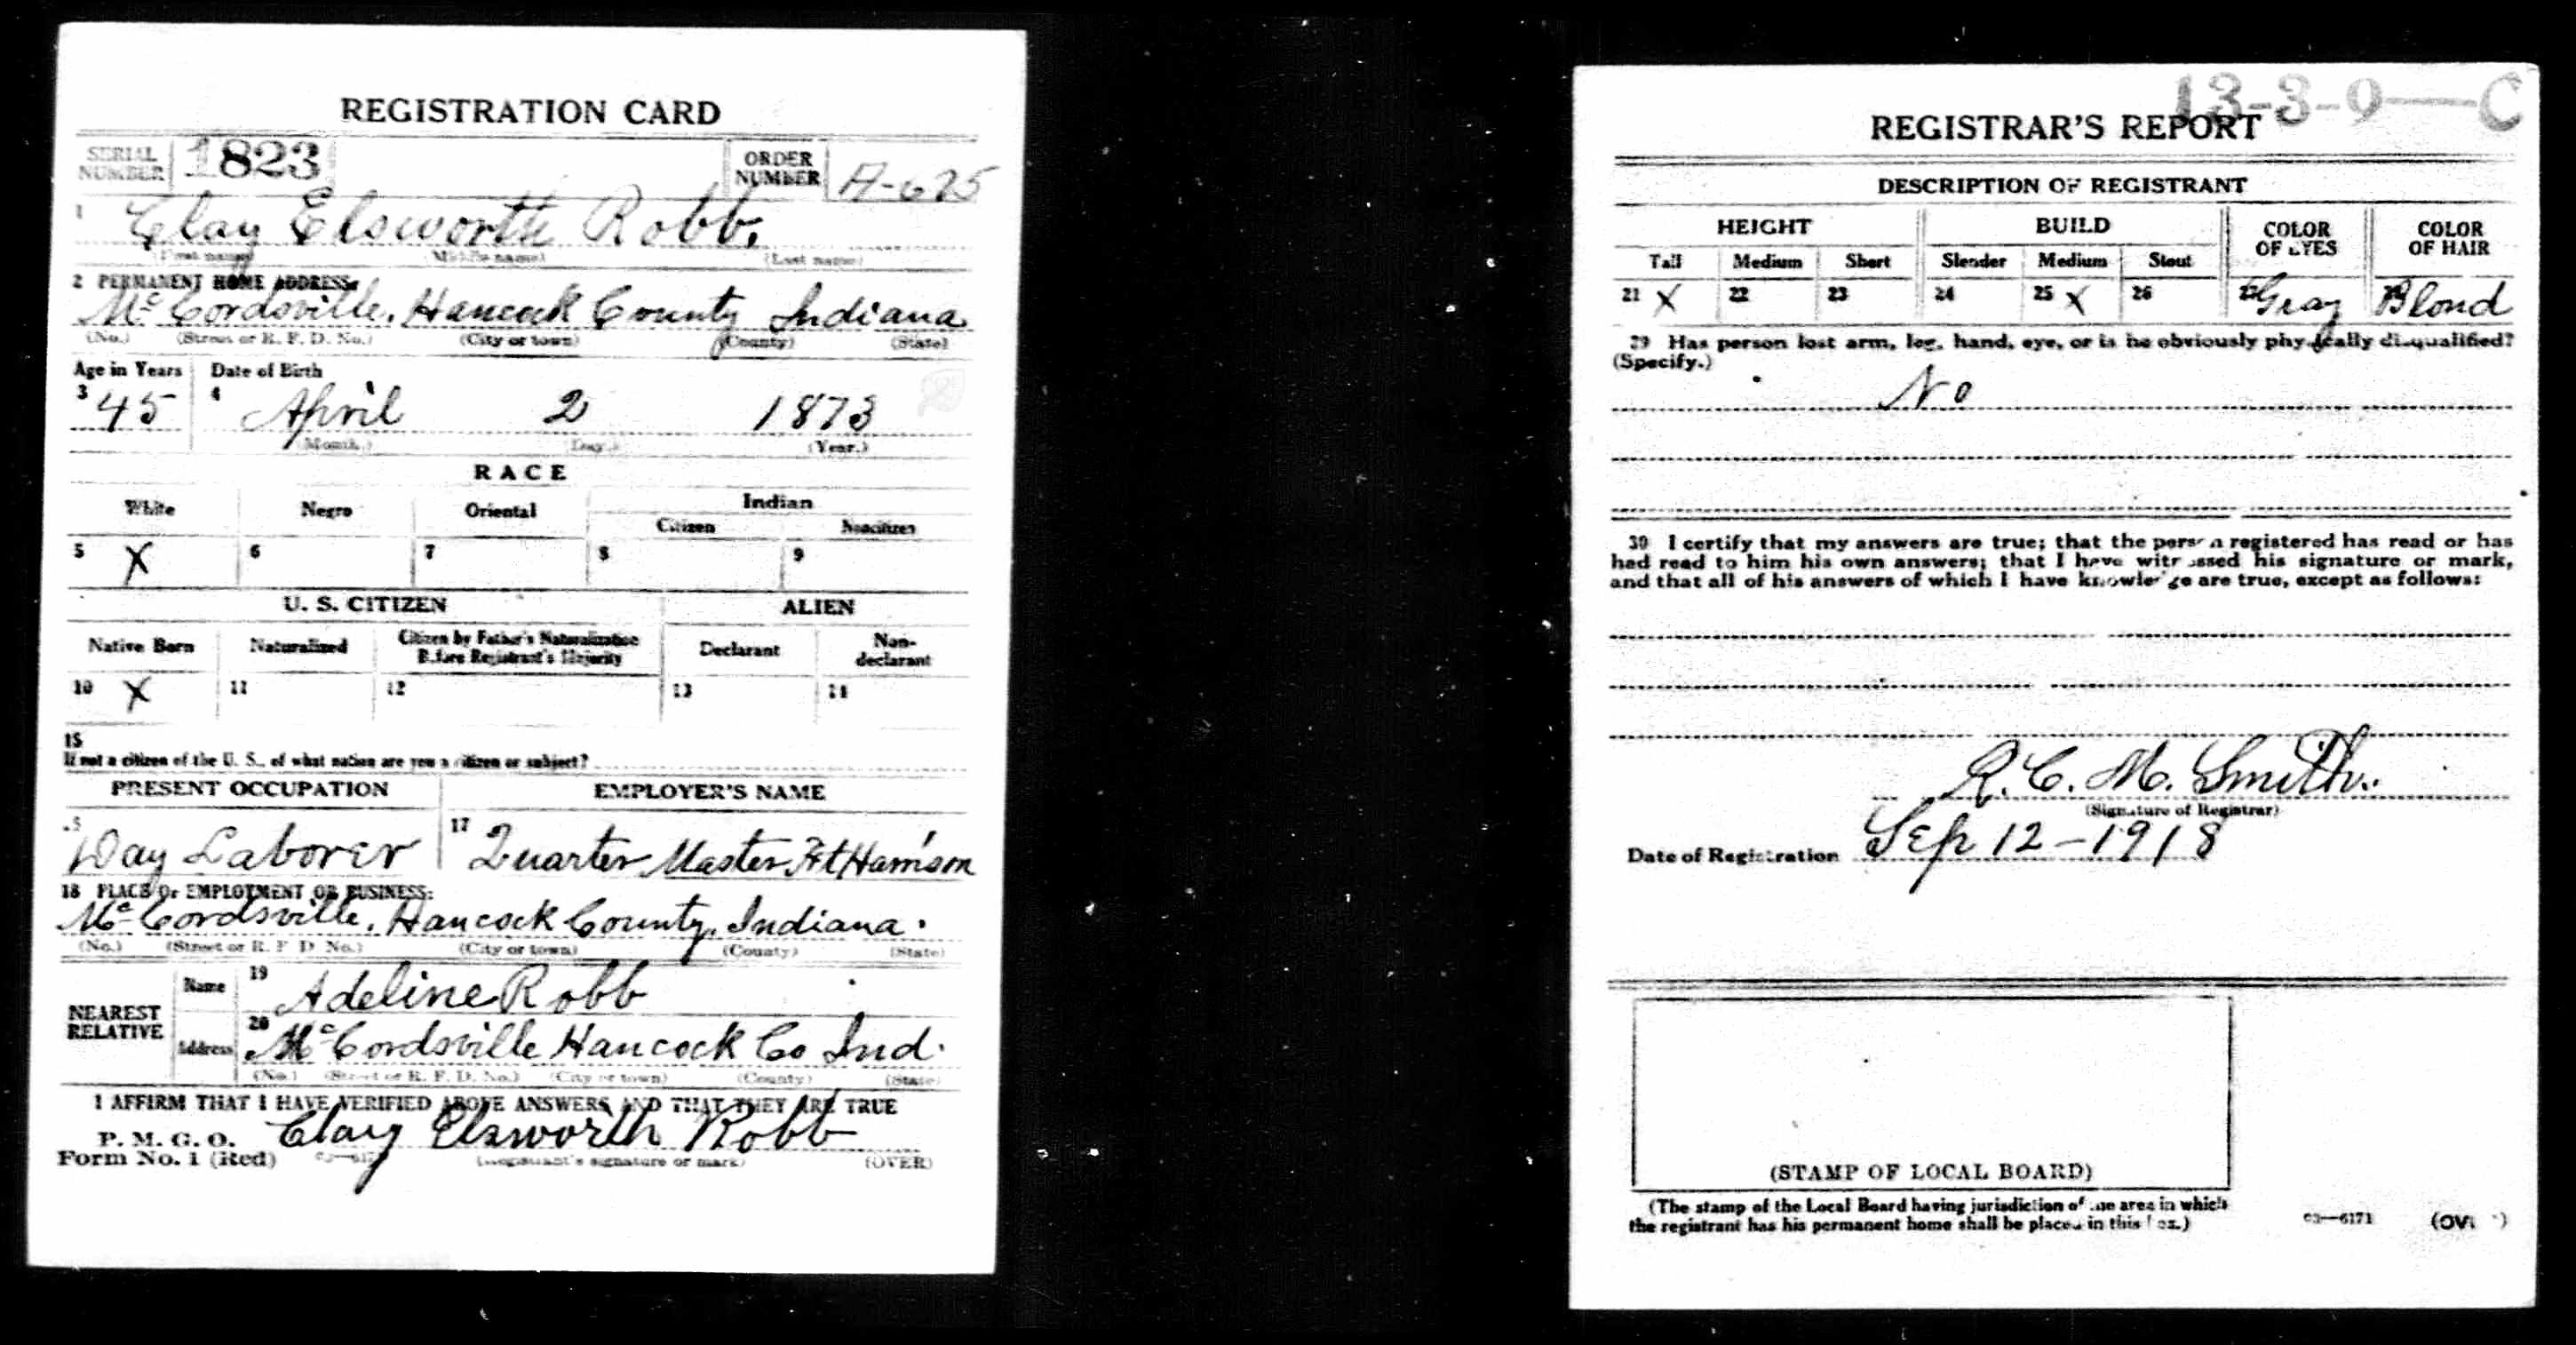 REGISTRATION CARD
SERIAL NUMBER 1823 ORDER NUMBER A-625
1 Clay Elsworth Robb.
(First name) (Middle name) (Last name)
2 PERMANENT HOME ADDRESS:
McCordsville, Hancock County Indiana
(No.) (Street or R. F. D. No.) (City or town) (County) (State)
Age in Years Date of Birth
3 45 4 April 2 1873
(Month.) (Day.) (Year.)
RACE
White Negro Oriental Indian
Citizen Noncitizen
5 X 6 7 8 9
U. S. CITIZEN ALIEN
Native Born Naturalized Citizen by Father's Naturalization Before Registrant's Majority Declarant Non-declarant
10 X 11 12 13 14
15
If not a citizen of the U. S., of what nation are you a citizen or subject?
PRESENT OCCUPATION EMPLOYER'S NAME
Day Laborer 17 Quarter Master Ft Harrison
18 PLACE OF EMPLOYMENT OR BUSINESS:
McCordsville, Hancock County, Indiana.
(No.) (Street or R. F. D. No.) (City or town) (County) (State)
NEAREST RELATIVE Name 19 Adeline Robb
Address 20 McCordsville Hancock Co Ind.
(No.) (Street or R. F. D. No.) (City or town) (County) (State)
I AFFIRM THAT I HAVE VERIFIED ABOVE ANSWERS AND THAT THEY ARE TRUE
P. M. G. O.
Form No. 1 (Red) Clay Elsworth Robb
(Registrant's signature or mark) (OVER)
13-3-9—C
REGISTRAR'S REPORT
DESCRIPTION OF REGISTRANT
HEIGHT BUILD COLOR OF EYES COLOR OF HAIR
Tall Medium Short Slender Medium Stout
21 X 22 23 24 25 X 26 27 Gray Blond
29 Has person lost arm, leg, hand, eye, or is he obviously physically disqualified?
(Specify.)
No
30 I certify that my answers are true; that the person registered has read or has
had read to him his own answers; that I have witnessed his signature or mark,
and that all of his answers of which I have knowledge are true, except as follows:
R. C. M. Smith.
(Signature of Registrar)
Date of Registration Sep 12-1918
(STAMP OF LOCAL BOARD)
(The stamp of the Local Board having jurisdiction of the area in which
the registrant has his permanent home shall be placed in this box.)
03—6171 (OVER)